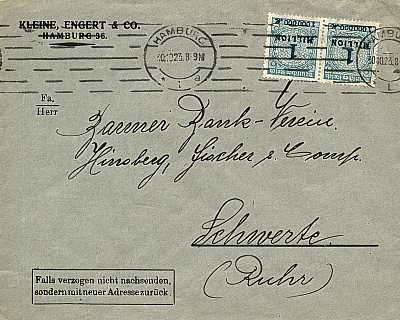 KLEINE, ENGERT & CO.
HAMBURG 36.
HAMBURG
30.10.23. 8-9 N
1 MILLION
1 MILLION
Fa.
Herr
Barmer Bank-Verein.
Hinsberg, Fischer & Comp.
Schwerte.
(Ruhr)
Falls verzogen nicht nachsenden,
sondern mit neuer Adresse zurück.